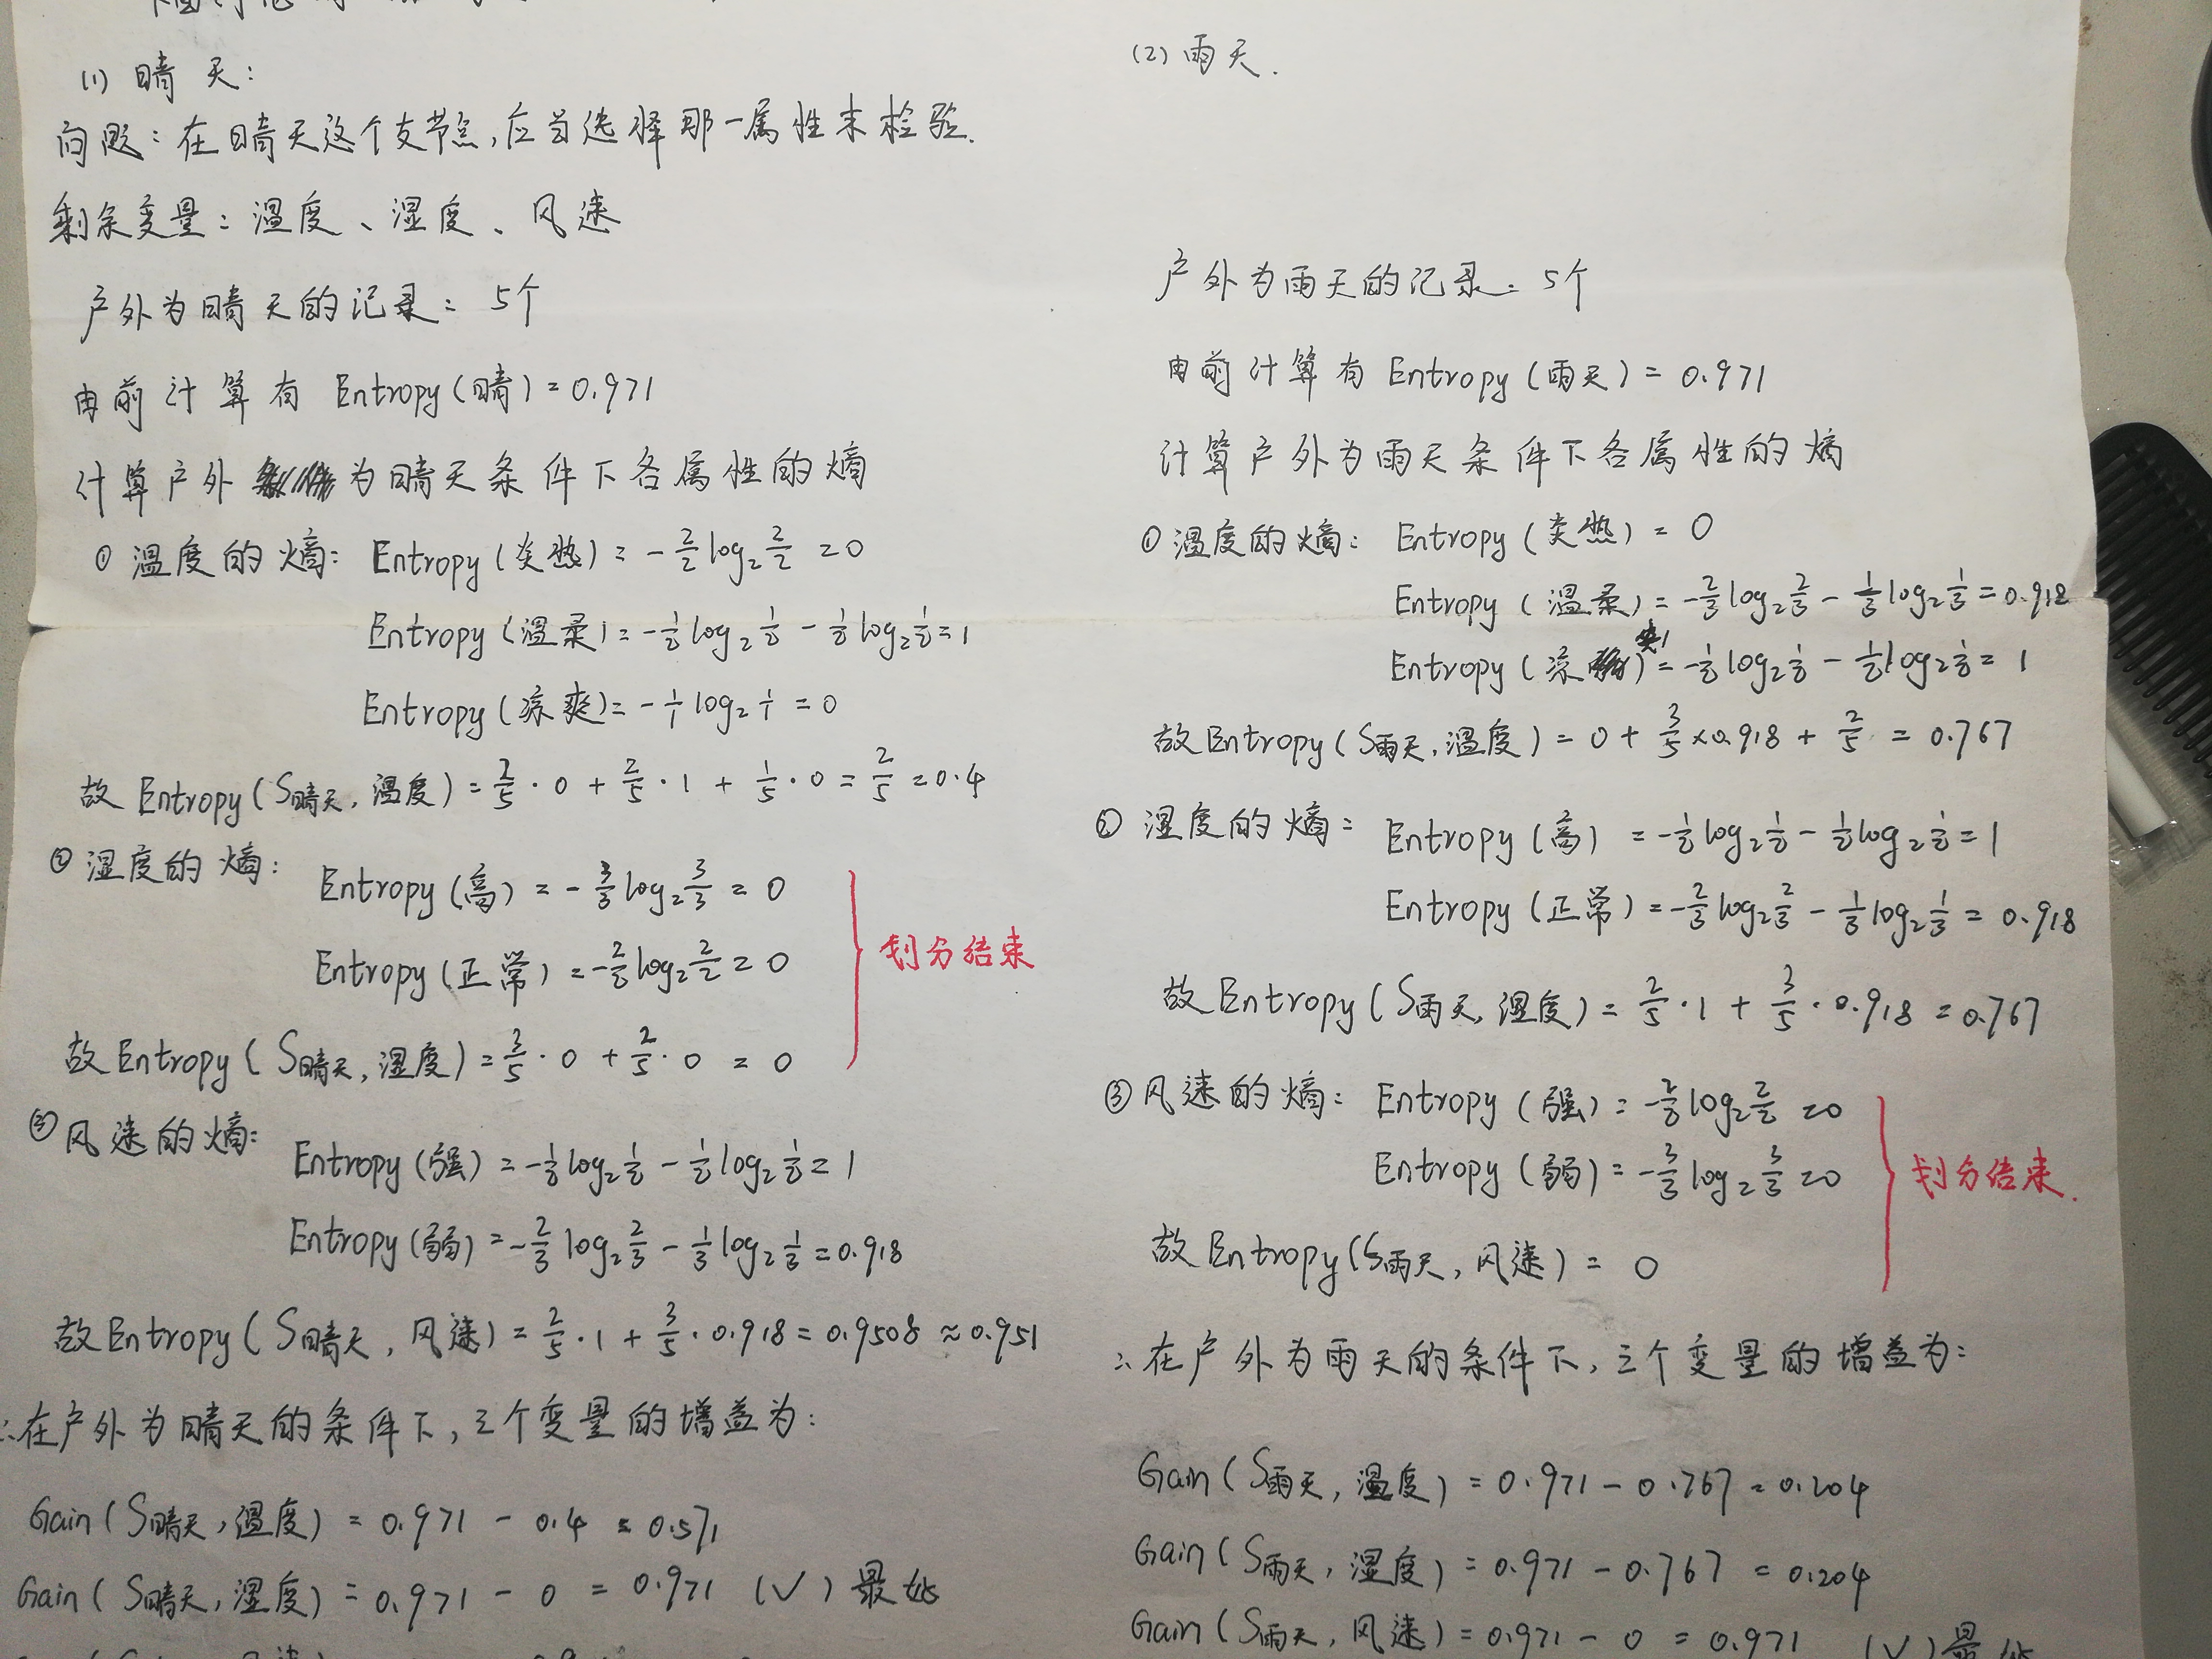 (1) 晴天:
问题: 在晴天这个支节点,应当选择那一属性来检验.
剩余变量: 温度、湿度、风速
户外为晴天的记录: 5个
由前计算有 Entropy(晴)=0.971
计算户外为晴天条件下各属性的熵
① 温度的熵: Entropy(炎热) = -2/2 log₂ 2/2 = 0
Entropy(温柔) = -1/2 log₂ 1/2 - 1/2 log₂ 1/2 = 1
Entropy(凉爽) = -1/1 log₂ 1/1 = 0
故 Entropy(S晴天,温度) = 2/5·0 + 2/5·1 + 1/5·0 = 2/5 = 0.4
② 湿度的熵:
Entropy(高) = -3/3 log₂ 3/3 = 0
Entropy(正常) = -2/2 log₂ 2/2 = 0
划分结束
故 Entropy(S晴天,湿度) = 3/5·0 + 2/5·0 = 0
③ 风速的熵:
Entropy(强) = -1/2 log₂ 1/2 - 1/2 log₂ 1/2 = 1
Entropy(弱) = -2/3 log₂ 2/3 - 1/3 log₂ 1/3 = 0.918
故 Entropy(S晴天,风速) = 2/5·1 + 3/5·0.918 = 0.9508 ≈ 0.951
∴在户外为晴天的条件下,三个变量的增益为:
Gain(S晴天,温度) = 0.971 - 0.4 = 0.571
Gain(S晴天,湿度) = 0.971 - 0 = 0.971 (√) 最好
(2) 雨天.
户外为雨天的记录: 5个
由前计算有 Entropy(雨天) = 0.971
计算户外为雨天条件下各属性的熵
① 温度的熵: Entropy(炎热) = 0
Entropy(温柔) = -2/3 log₂ 2/3 - 1/3 log₂ 1/3 = 0.918
Entropy(凉爽) = -1/2 log₂ 1/2 - 1/2 log₂ 1/2 = 1
故 Entropy(S雨天,温度) = 0 + 3/5×0.918 + 2/5 = 0.767
② 湿度的熵: Entropy(高) = -1/2 log₂ 1/2 - 1/2 log₂ 1/2 = 1
Entropy(正常) = -2/3 log₂ 2/3 - 1/3 log₂ 1/3 = 0.918
故 Entropy(S雨天,湿度) = 2/5·1 + 3/5·0.918 = 0.767
③ 风速的熵: Entropy(强) = -2/2 log₂ 2/2 = 0
Entropy(弱) = -3/3 log₂ 3/3 = 0
划分结束.
故 Entropy(S雨天,风速) = 0
∴在户外为雨天的条件下,三个变量的增益为:
Gain(S雨天,温度) = 0.971 - 0.767 = 0.204
Gain(S雨天,湿度) = 0.971 - 0.767 = 0.204
Gain(S雨天,风速) = 0.971 - 0 = 0.971 (√) 最好